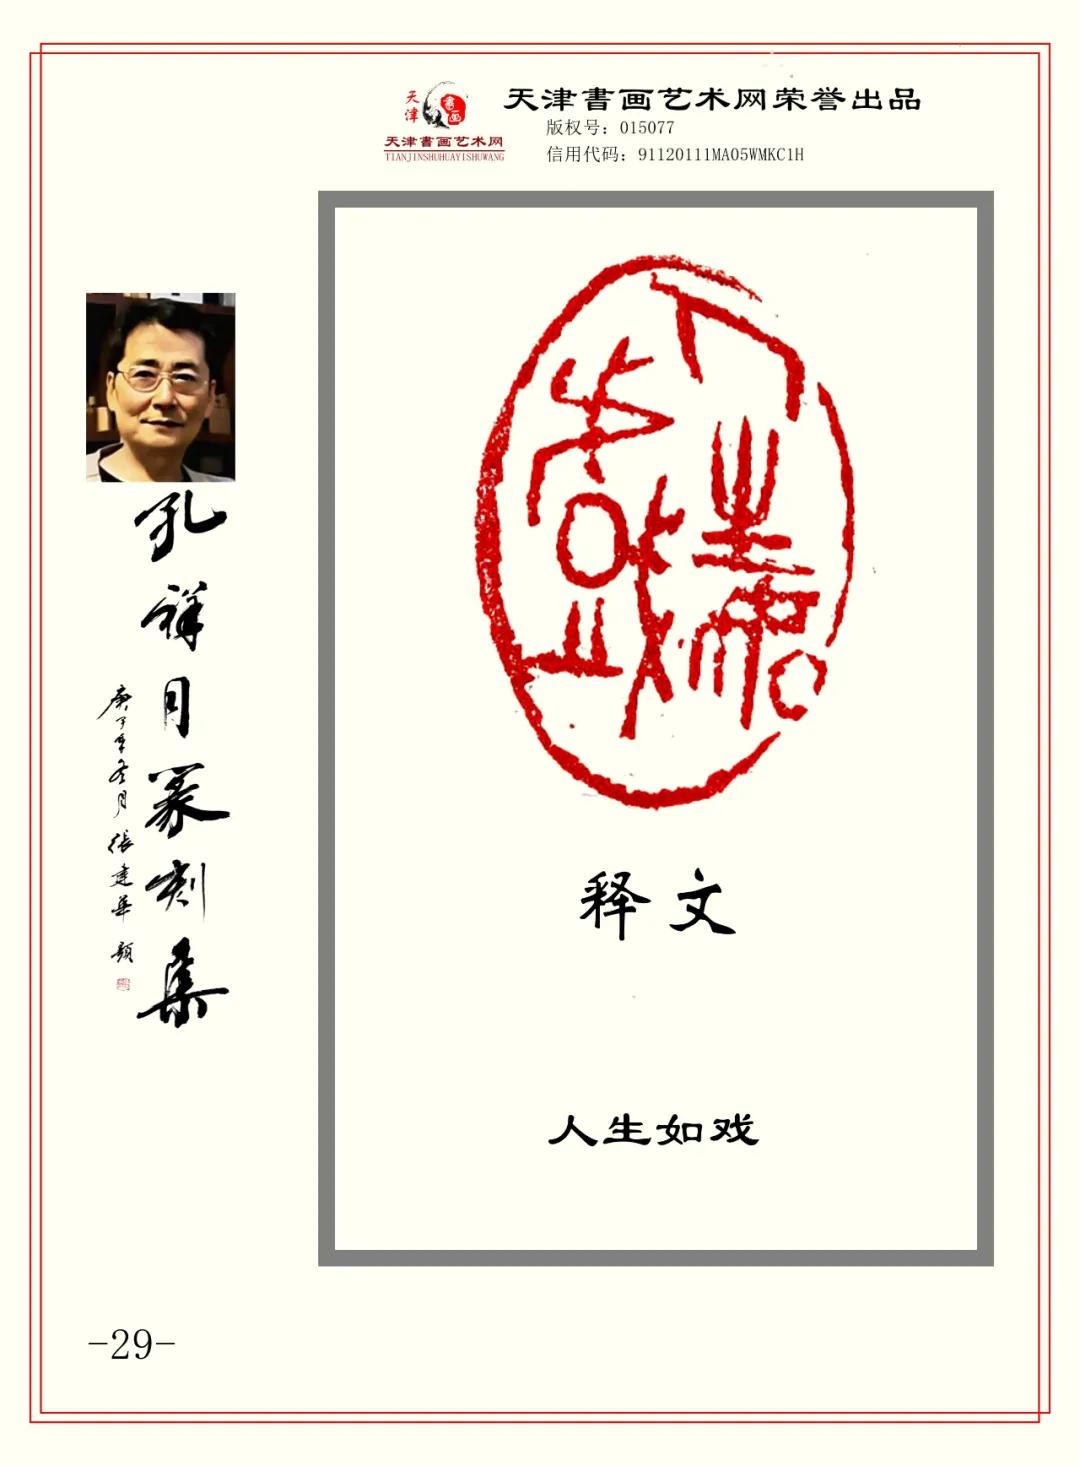 天津
書画
天津書画艺术网
TIANJINSHUHUAYISHUWANG
天津書画艺术网荣誉出品
版权号：015077
信用代码：91120111MA05WMKC1H
孔祥月篆刻集
庚子年冬月張建華題
人生如戏
释文
人生如戏
-29-